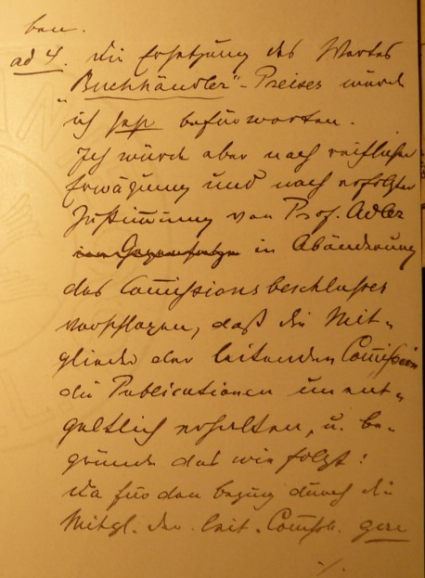 ben.
ad 4. Die Ersetzung des Wortes
"Buchhändler"-Preises würde
ich sehr befürworten.
Ich würde aber nach reiflicher
Erwägung und nach erfolgter
Zustimmung von Prof. Adler
in Abänderung
des Commissionsbeschlusses
vorschlagen, daß die Mit-
glieder der leitenden Commission
die Publicationen unent-
geltlich erhalten, u. be-
gründe das wie folgt:
Da für den Bezug durch die
Mitgl. der leit. Commssn.
./.